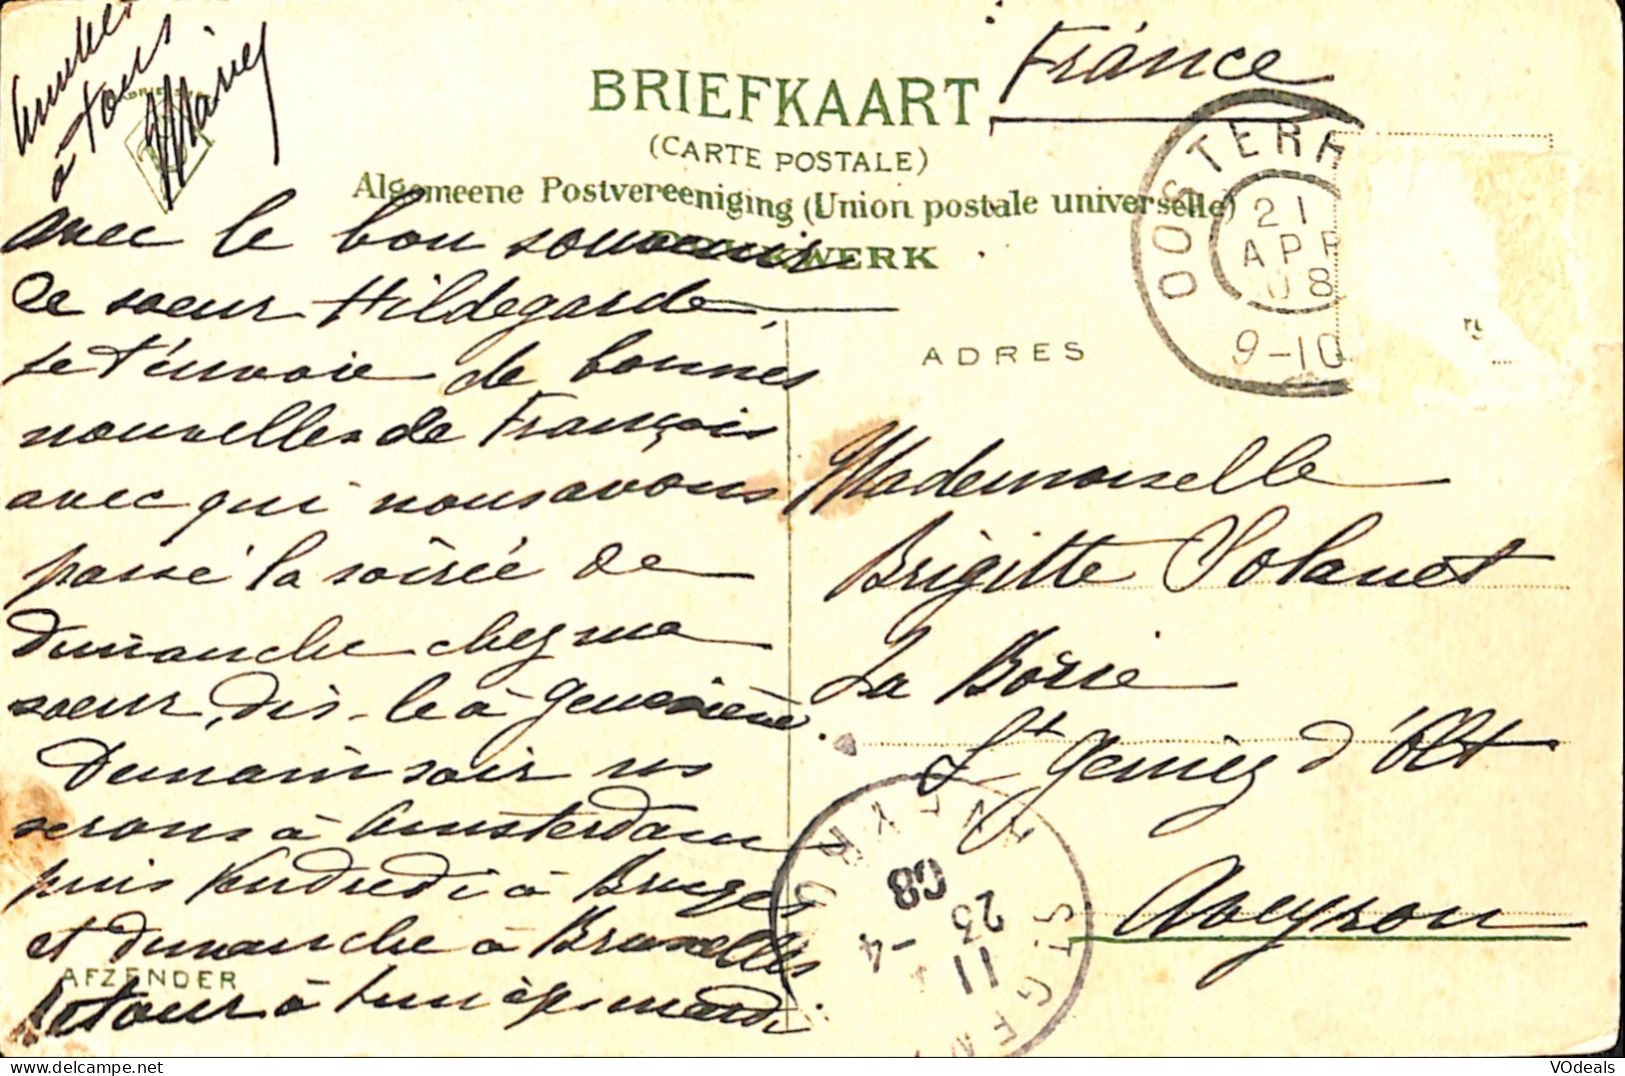 à tous
Marie
France
BRIEFKAART
(CARTE POSTALE)
Algemeene Postvereeniging (Union postale universelle)
WERK
ADRES
OOSTERH
21
APR
08
9-10
avec le bon souvenir
de soeur Hildegarde,
je t'envoie de bonnes
nouvelles de François
avec qui nous avons
passé la soirée de
dimanche chez ma
soeur, dis-le à Geneviève.
Demain soir ns
serons à Amsterdam
puis Vendredi à Bruges
et dimanche à Bruxelles
AFZENDER
retour à mardi
Mademoiselle
Brigitte Solanet
La Borie
St Geniez d'Olt
Aveyron
ST GEN
AVEYRON
11
23 -4
08
VOdeals